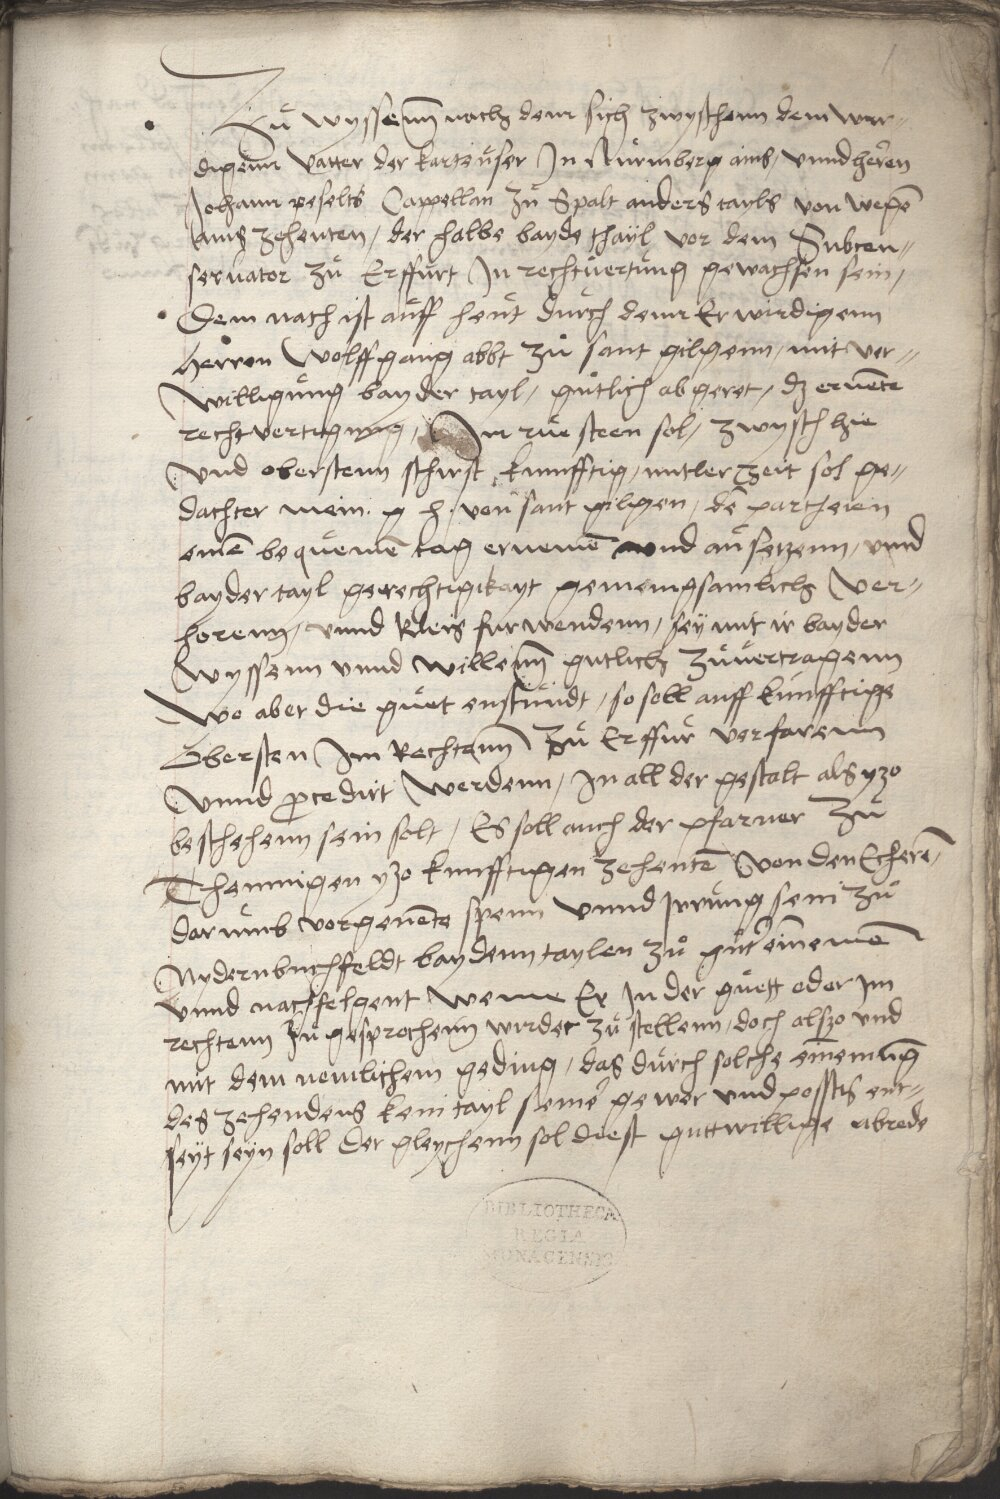 Zu wyssenn nach dem sich zwyschenn dem wir-
digenn vatter der kartheuser In Nurmberg ains, vnnd herren
Johann peselts Cappellan zu Spalt anders tayls von wegē
ains zehenten, der halbe bayde thayl vor dem Subcon-
seruator zu Erffurt In rechtuertung gewachsen sein,
Dem nach ist auff heut durch denn Erwirdigenn
herren Wolffgang abbt zu sant gilgenn, mit ver-
willigung bayder tayl, gutlich abgeret, dz ernente
rechtvertigung, In rue steen sol, zwysch hie
vnd oberstenn schirst kunfftig, mitler zeit sol ge-
dachter mein g h von sant gilgen, dē partheien
einē bequemē tag ernennē vnd ansetzenn, vnnd
bayder tayl gerechtigkayt gemeingsamlich ver-
horenn, vnnd vleis furwendenn, sey mit ir bayder
wyssenn vnnd willenn gutlich zuuertragenn
Wo aber die guet enstundt, so soll auff kunfftige
Obersten Im Rechtenn zu Erffur verfarenn
Vnnd procedirt werdenn, In all der gestalt als yzo
beschehenn sein solt, Es soll auch der pfarrer zu
Thennigen yzo kunfftigen zehentē von den Echerē,
darumb vorgenente spenn vnnd Irrung sein zu
Nydernbuchfeldt baydenn taylen zu gut einnemē
vnnd nachfolgent weme Er In der guett oder Im
rechtenn zugesprochenn wirdet zu stellenn, doch alszo vnd
mit dem nemlichem geding, das durch solche einemūg
des zehendens kein tayl seiner gewer vnd possess ent-
seyt seyn soll Der gleychenn sol diese guttwillige abrede
BIBLIOTHECA
REGIA
MONACENSIS